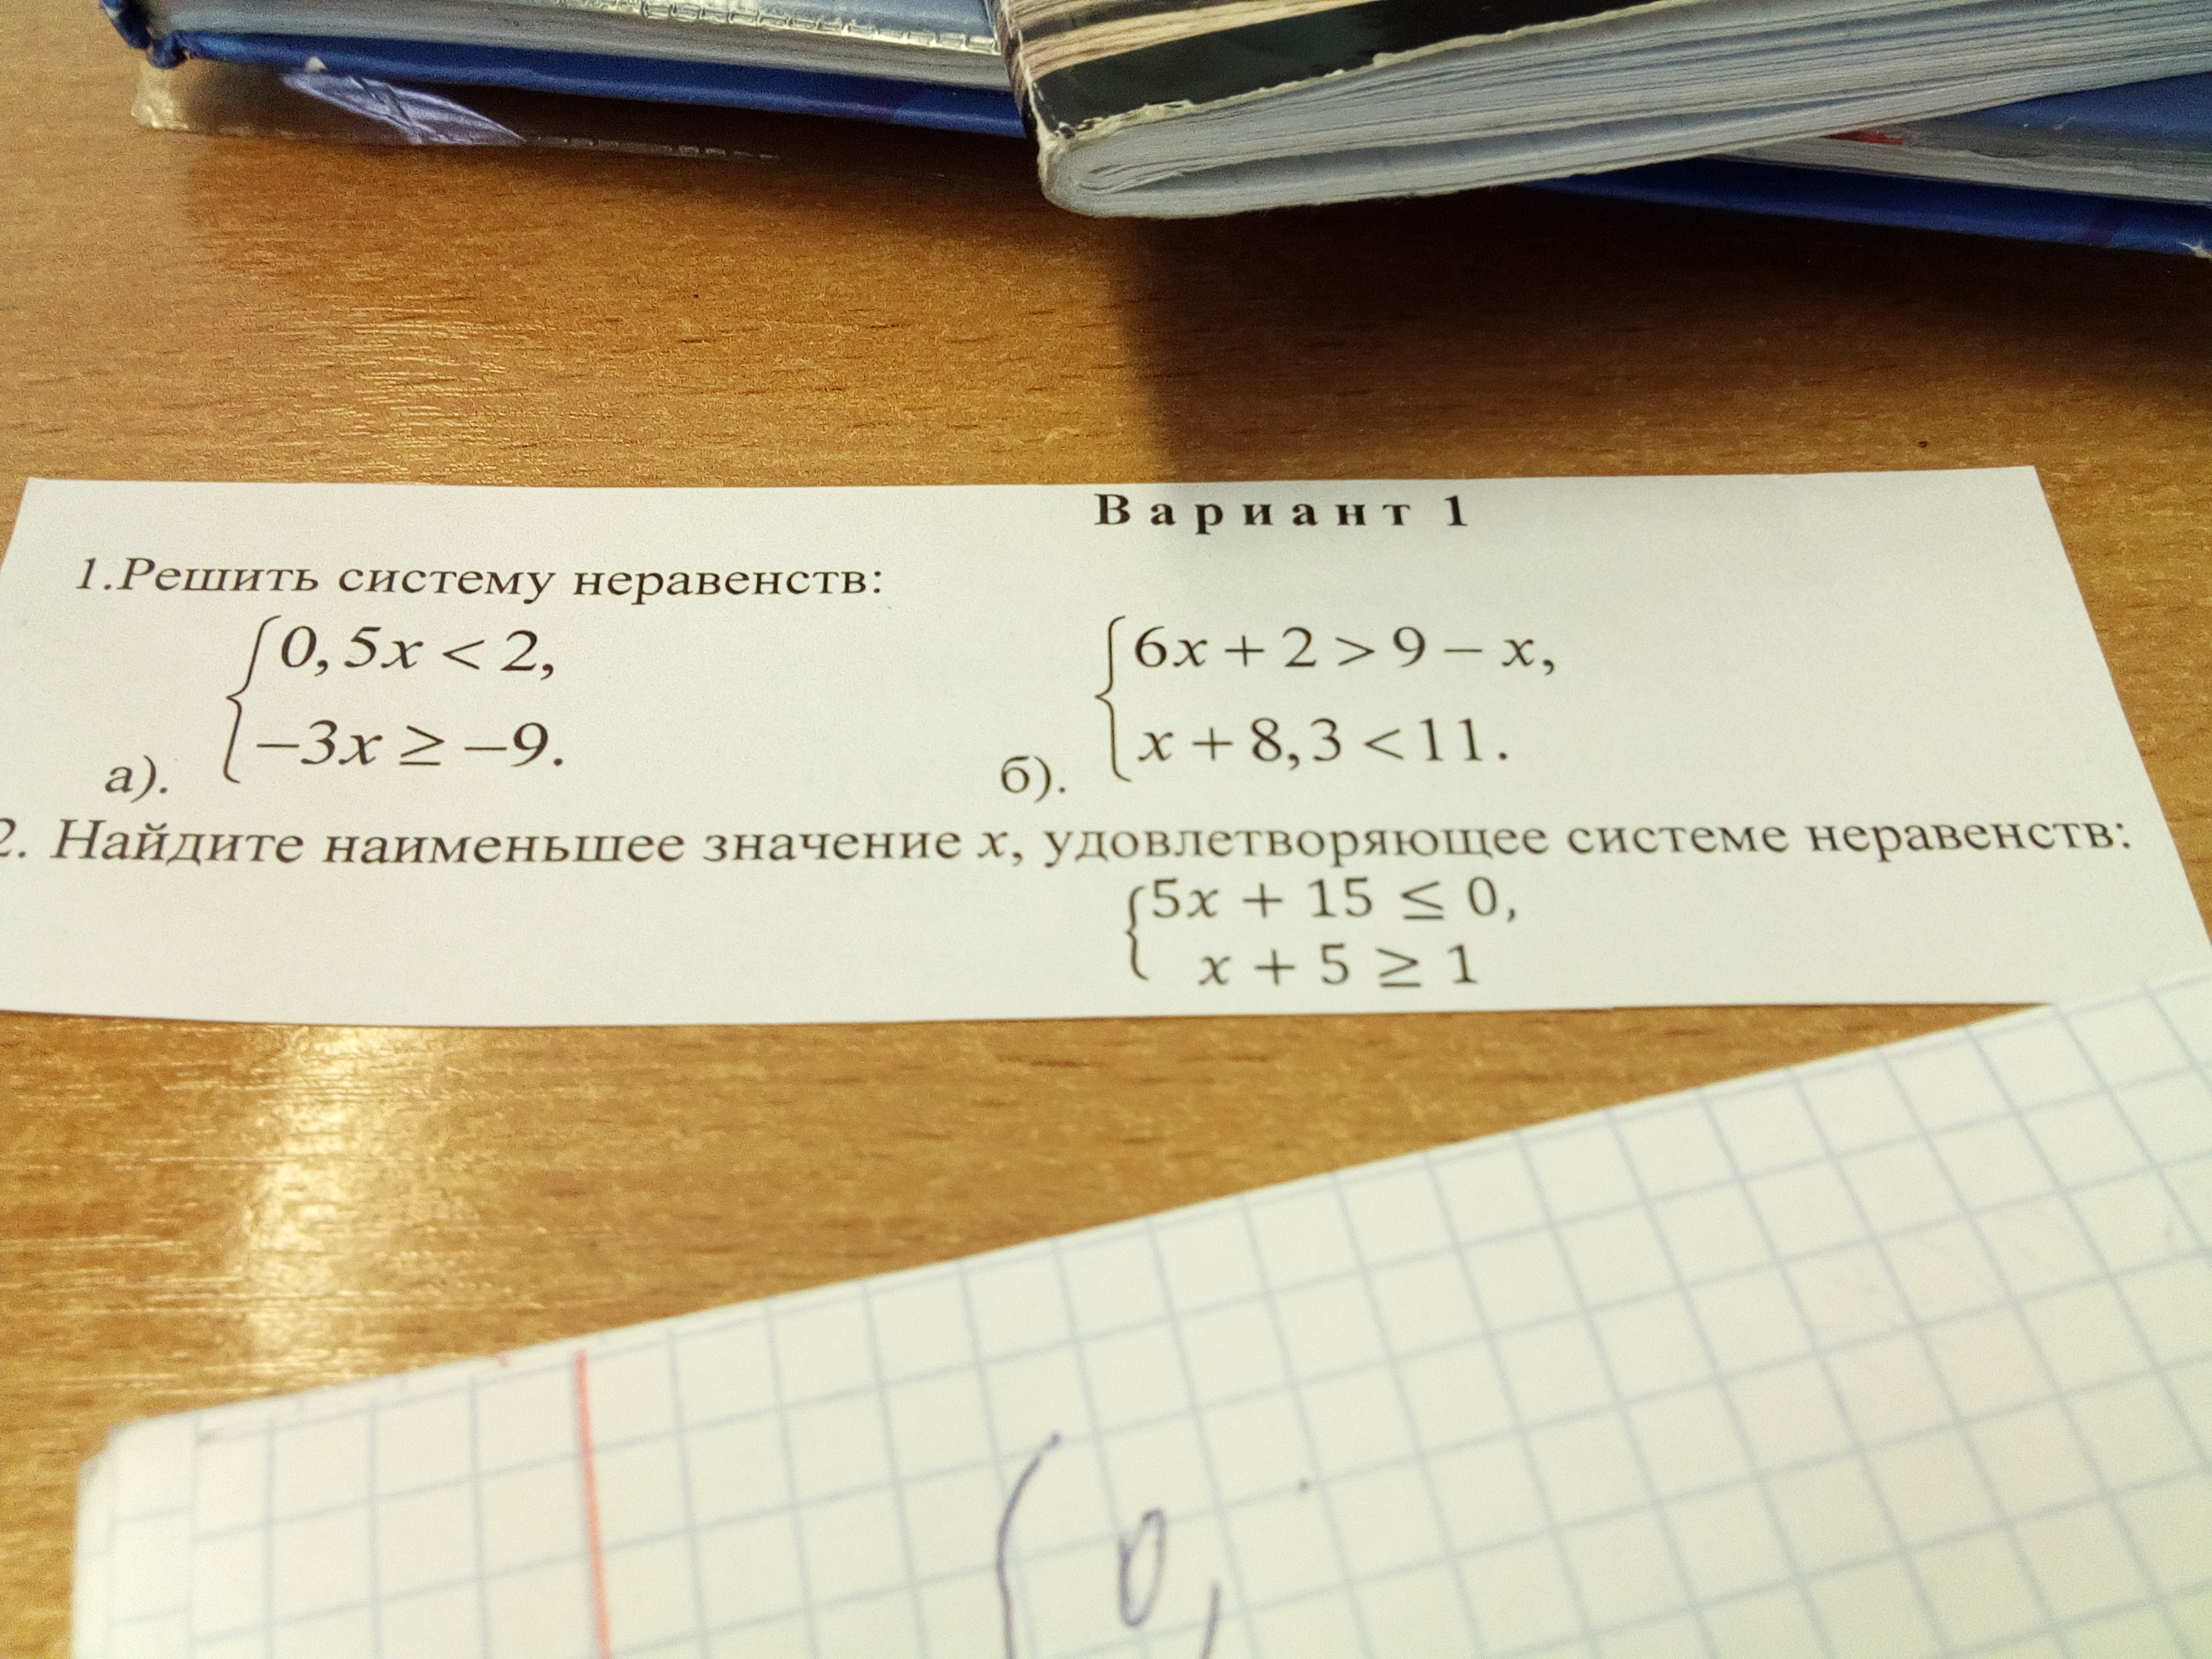 Вариант 1
1.Решить систему неравенств:
а). {0,5x < 2,
−3x ≥ −9.
б). {6x + 2 > 9 − x,
x + 8,3 < 11.
2. Найдите наименьшее значение x, удовлетворяющее системе неравенств:
{5x + 15 ≤ 0,
x + 5 ≥ 1
{0,